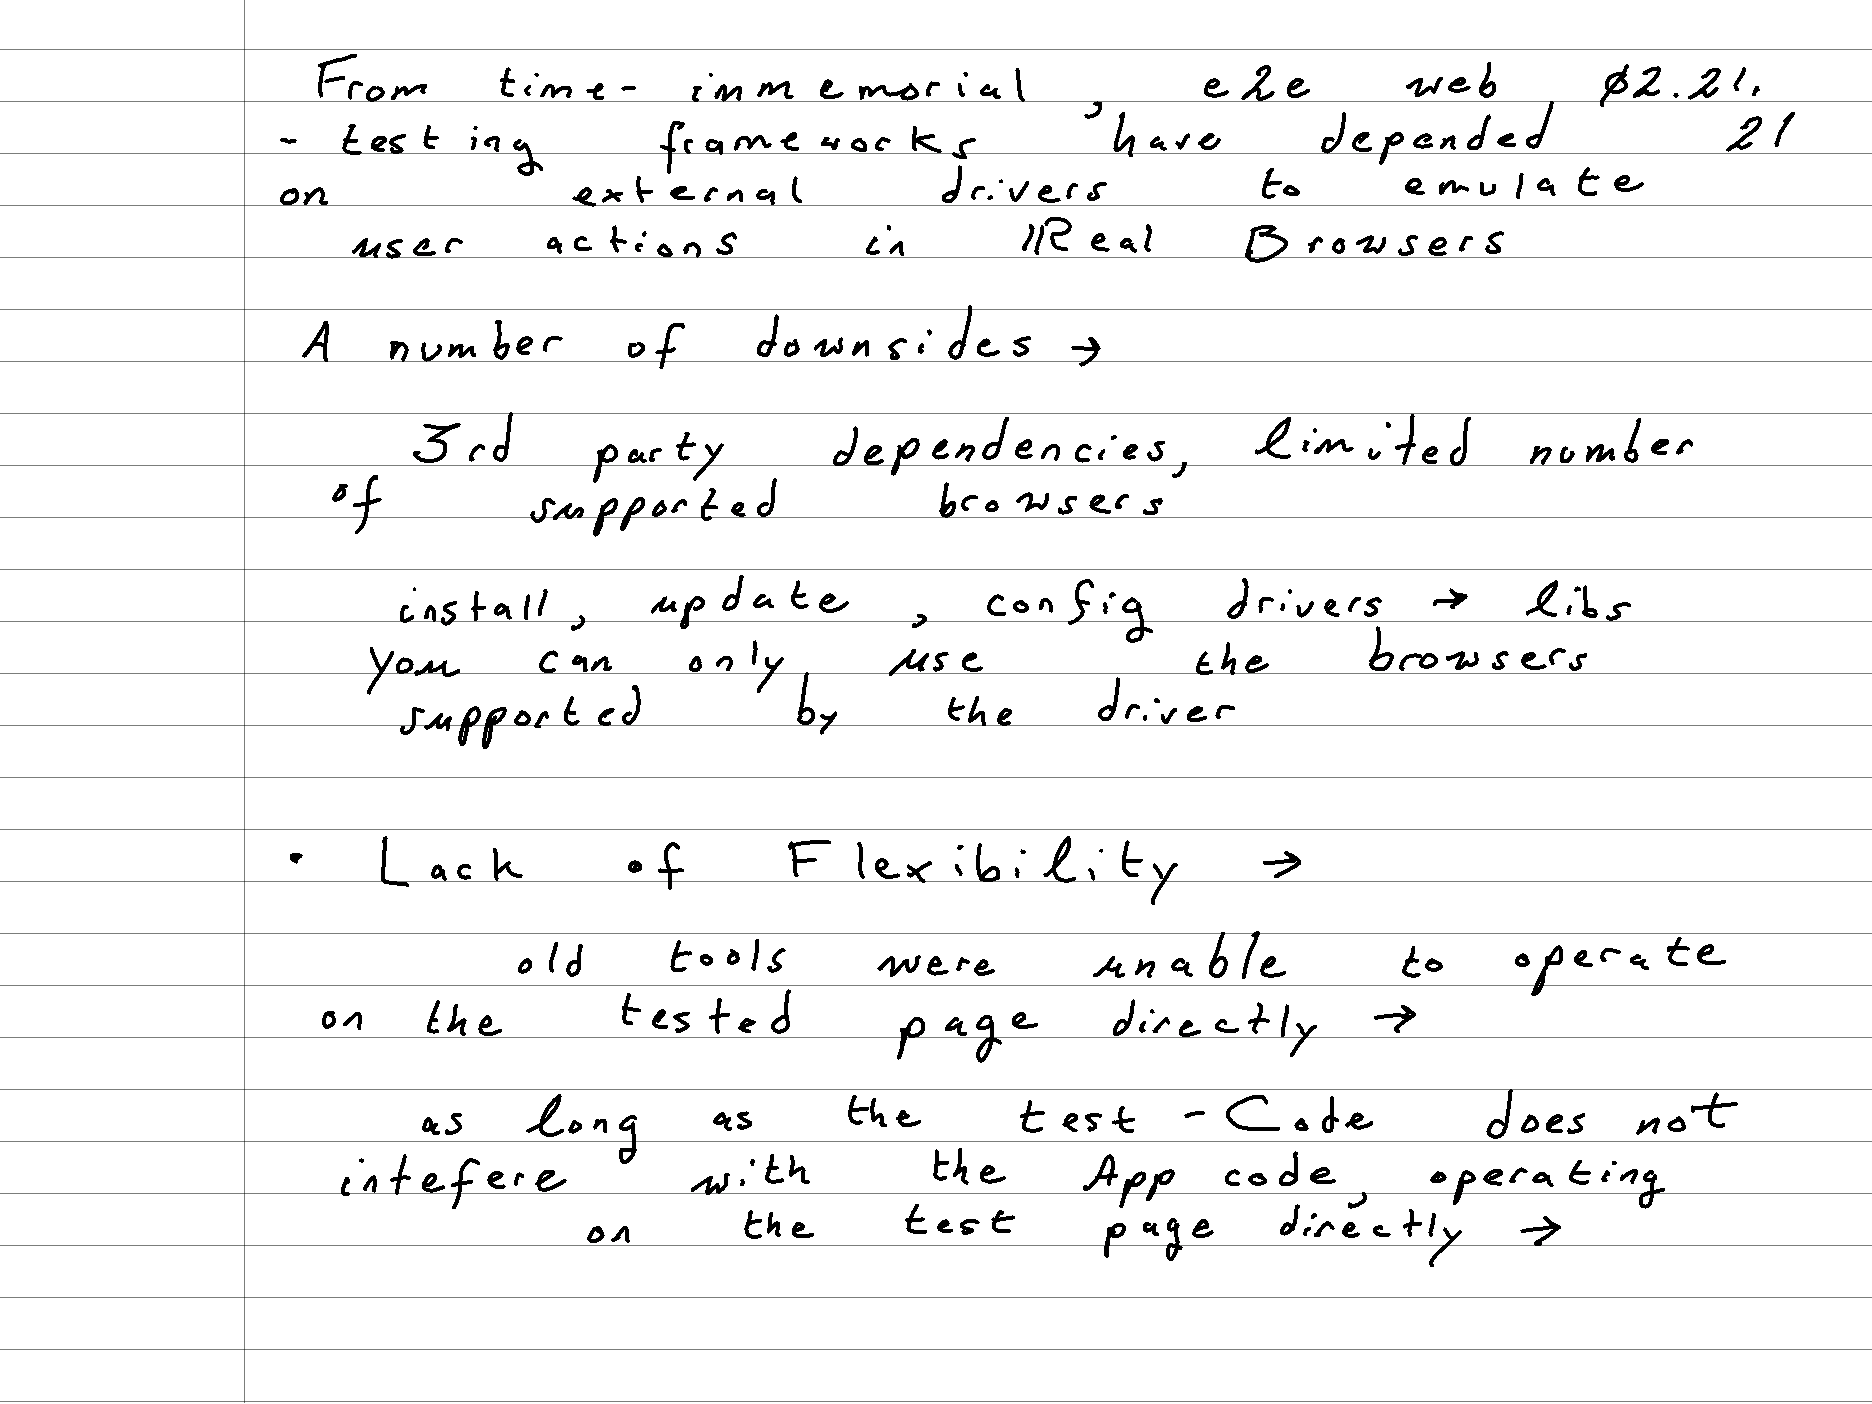 From time- immemorial, e2e web ø2.21.
- testing frameworks have depended 21
on external drivers to emulate
user actions in Real Browsers
A number of downsides →
3rd party dependencies, limited number
of supported browsers
install, update, config drivers → libs
you can only use the browsers
supported by the driver
• Lack of Flexibility →
old tools were unable to operate
on the tested page directly →
as long as the test - Code does not
intefere with the App code, operating
on the test page directly →